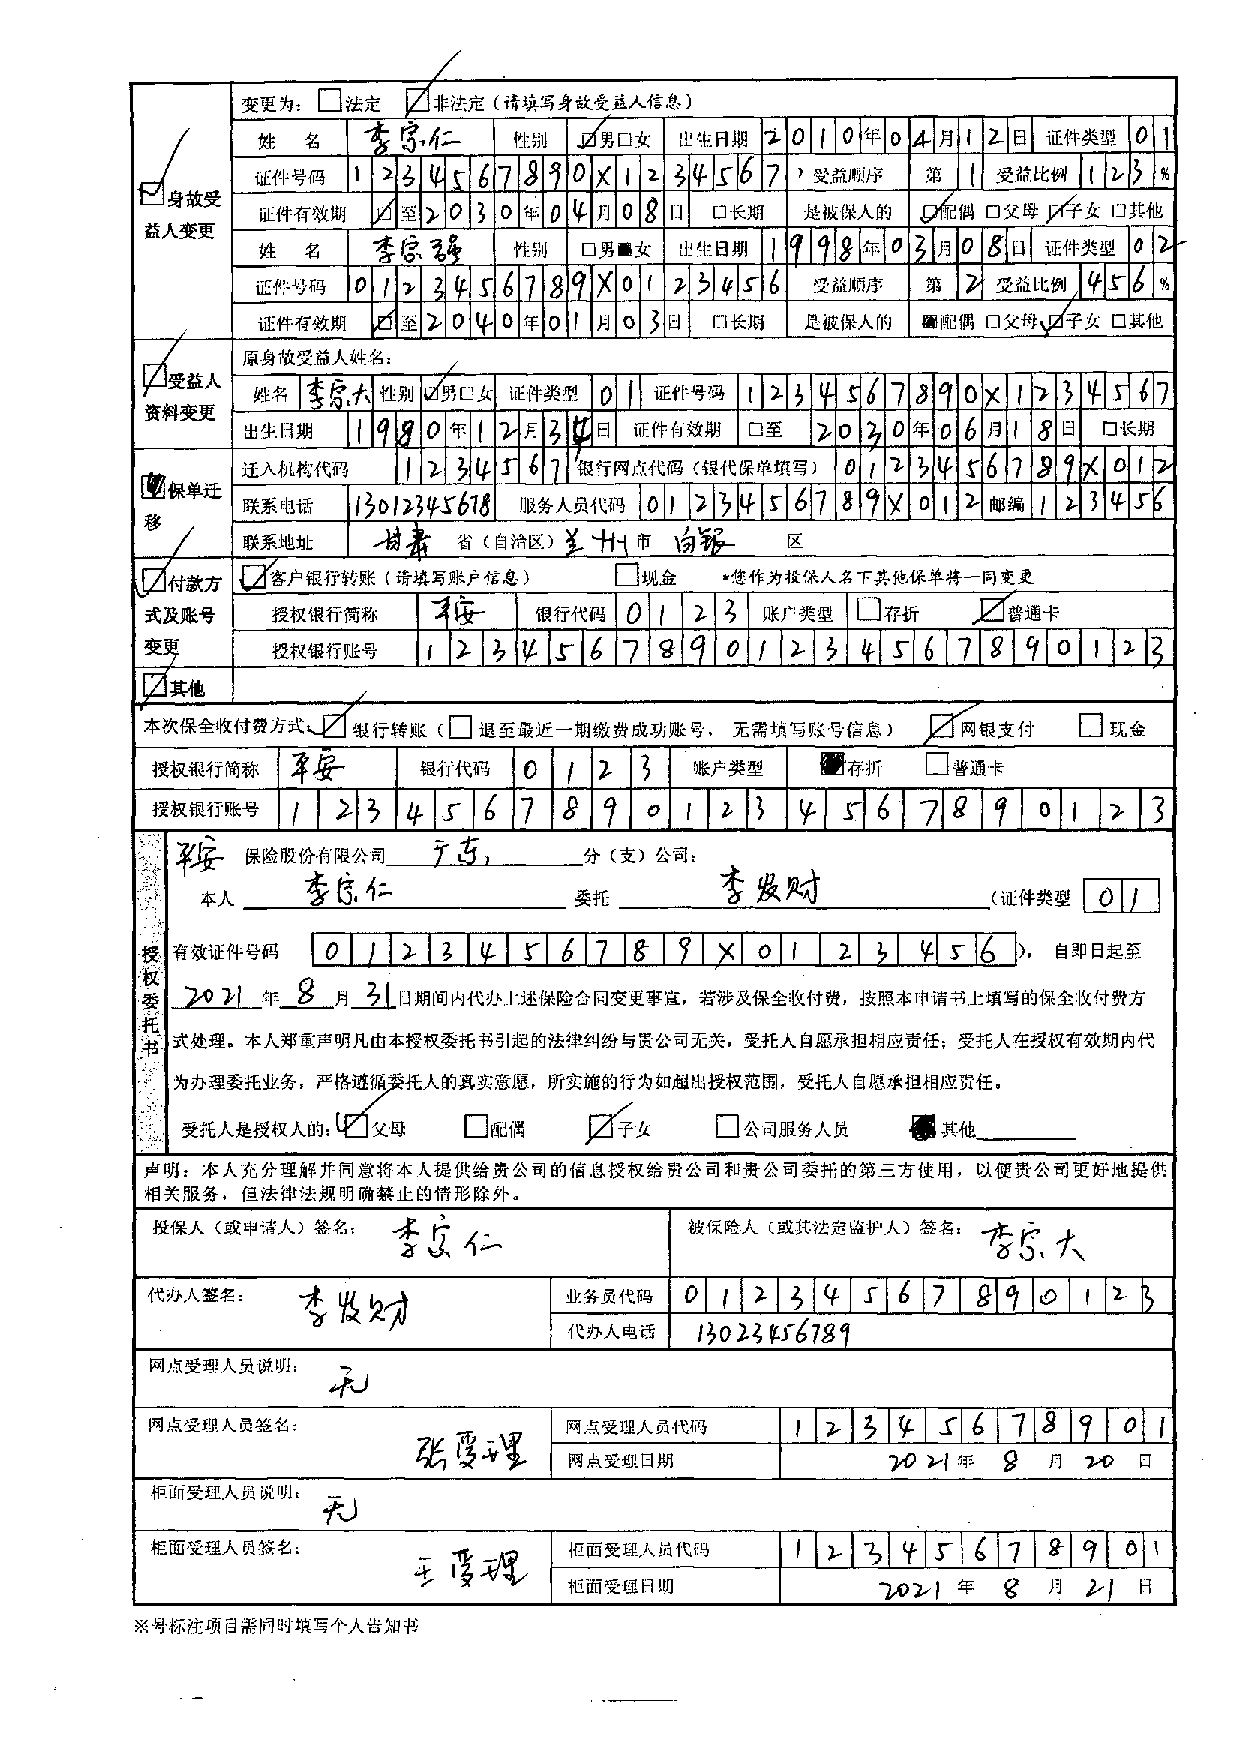 变更为：☐法定 ☑非法定（请填写身故受益人信息）
☑身故受益人变更
姓 名 李宗仁 性别 ☑男☐女 出生日期 2010年04月12日 证件类型 01
证件号码 1234567890X1234567 受益顺序 第1 受益比例 123%
证件有效期 ☑至2030年04月08日 ☐长期 是被保人的 ☑配偶 ☐父母 ☑子女 ☐其他
姓 名 李宗强 性别 ☐男■女 出生日期 1998年03月08日 证件类型 02
证件号码 0123456789X0123456 受益顺序 第2 受益比例 456%
证件有效期 ☑至2040年01月03日 ☐长期 是被保人的 ■配偶 ☐父母 ☑子女 ☐其他
☑受益人资料变更
原身故受益人姓名：
姓名 李宗大 性别 ☑男☐女 证件类型 01 证件号码 1234567890X1234567
出生日期 1980年12月34日 证件有效期 ☐至 2030年06月18日 ☐长期
■保单迁移
迁入机构代码 1234567 银行网点代码（银代保单填写）0123456789X012
联系电话 13012345678 服务人员代码 0123456789X012 邮编 123456
联系地址 甘肃 省（自治区）兰州 市 白银 区
☑付款方式及账号变更
☑客户银行转账（请填写账户信息） ☐现金 *您作为投保人名下其他保单将一同变更
授权银行简称 平安 银行代码 0123 账户类型 ☐存折 ☑普通卡
授权银行账号 12345678901234567890123
☑其他
本次保全收付费方式：☑银行转账（☐退至最近一期缴费成功账号，无需填写账号信息） ☑网银支付 ☐现金
授权银行简称 平安 银行代码 0123 账户类型 ■存折 ☐普通卡
授权银行账号 12345678901234567890123
授权委托书
平安 保险股份有限公司 广东 分（支）公司：
本人 李宗仁 委托 李发财 （证件类型 01
有效证件号码 0123456789X0123456 ），自即日起至
2021 年 8 月 31 日期间内代办上述保险合同变更事宜，若涉及保全收付费，按照本申请书上填写的保全收付费方
式处理。本人郑重声明凡由本授权委托书引起的法律纠纷与贵公司无关，受托人自愿承担相应责任；受托人在授权有效期内代
为办理委托业务，严格遵循委托人的真实意愿，所实施的行为如超出授权范围，受托人自愿承担相应责任。
受托人是授权人的：☑父母 ☐配偶 ☑子女 ☐公司服务人员 ■其他
声明：本人充分理解并同意将本人提供给贵公司的信息授权给贵公司和贵公司委托的第三方使用，以便贵公司更好地提供
相关服务，但法律法规明确禁止的情形除外。
投保人（或申请人）签名： 李宗仁 被保险人（或其法定监护人）签名： 李宗大
代办人签名： 李发财 业务员代码 01234567890123
代办人电话 13023456789
网点受理人员说明： 无
网点受理人员签名： 张受理 网点受理人员代码 12345678901
网点受理日期 2021年 8 月 20 日
柜面受理人员说明： 无
柜面受理人员签名： 王受理 柜面受理人员代码 12345678901
柜面受理日期 2021 年 8 月 21 日
※号标注项目需同时填写个人告知书